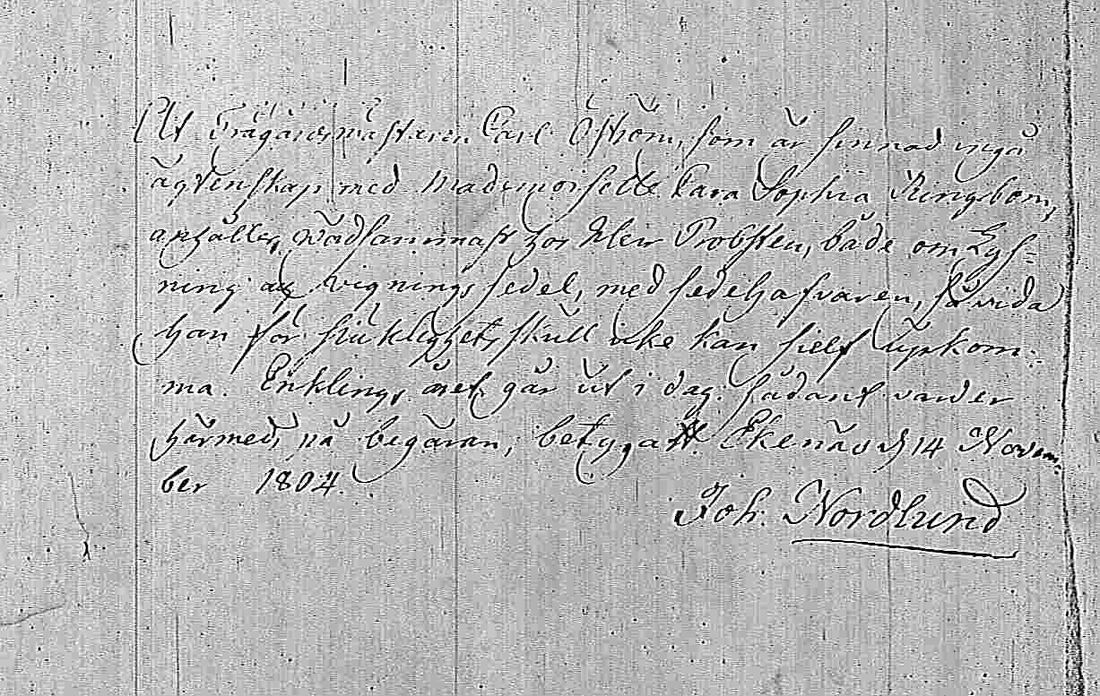 At Trägårdsmästaren Carl Öström, som är sinnad ingå
ägtenskap med Mademoiselle Cara Sophia Ringbom,
anhåller, rådsammast hos Herr Probsten, både om Lys-
ning och vignings sedel, med sedelhafvaren, så vida
han för siuklighets skull icke kan sielf upkom-
ma. Enklings året går ut i dag. Sådant varder
härmed, på begäran, betygatt. Ekenäs d 14 Novem-
ber 1804.
Joh. Nordlund